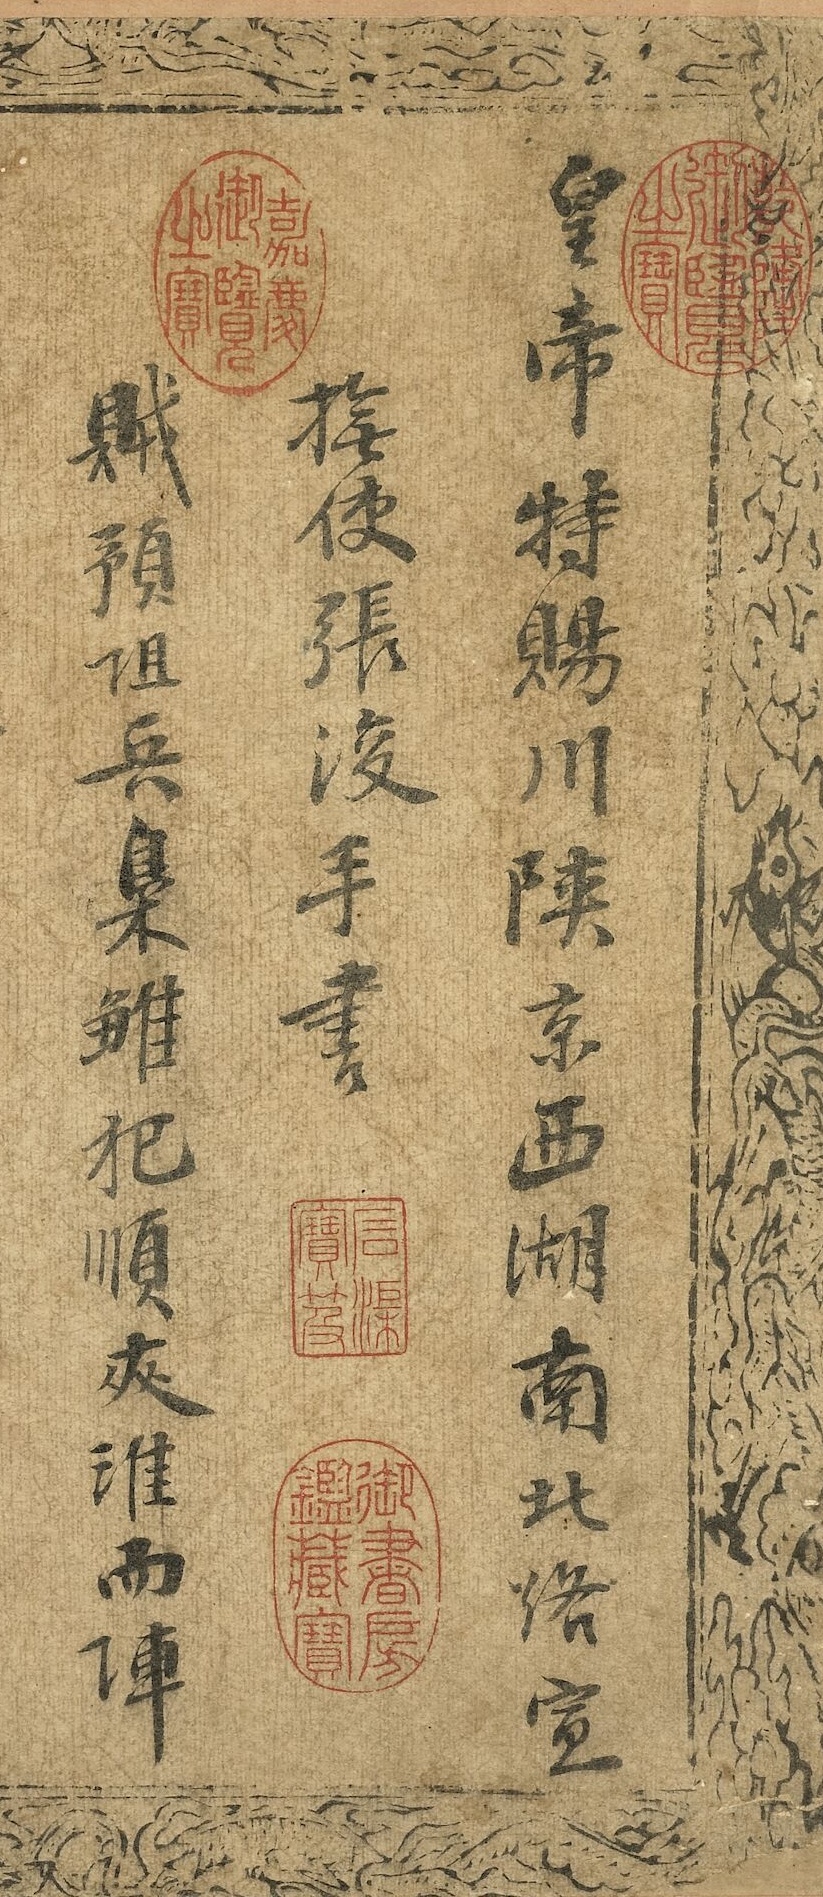 乾隆御覽之寶
皇帝特賜川陝京西湖南北路宣
嘉慶御覽之寶
撫使張浚手書
石渠寶笈
御書房鑑藏寶
賊預阻兵梟雏犯順夾淮而陣